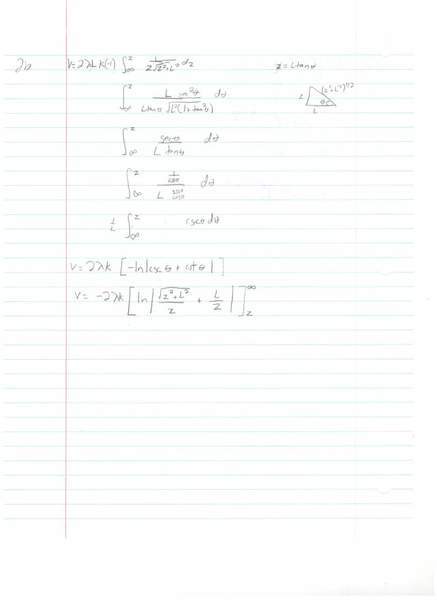 2b V = 2λLk(-1) ∫_∞^z 1/(z√(z²+L²)) dz z = Ltanθ
∫_∞^z L sec²θ/(Ltanθ √(L²(1+tan²θ))) dθ L (z²+L²)^1/2 θ L
∫_∞^z secθ/(L tanθ) dθ
∫_∞^z (1/cosθ)/(L sinθ/cosθ) dθ
1/L ∫_∞^z cscθ dθ
V = 2λk [-ln|cscθ + cotθ|]
V = -2λk [ln| √(z²+L²)/z + L/z |]_z^∞